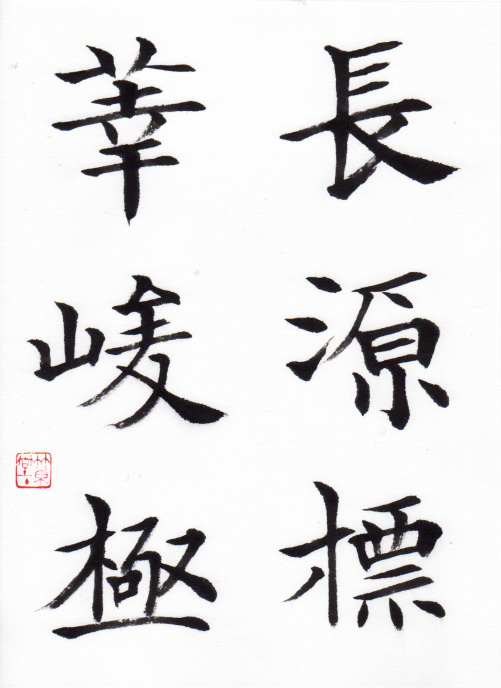 長源標
峻極